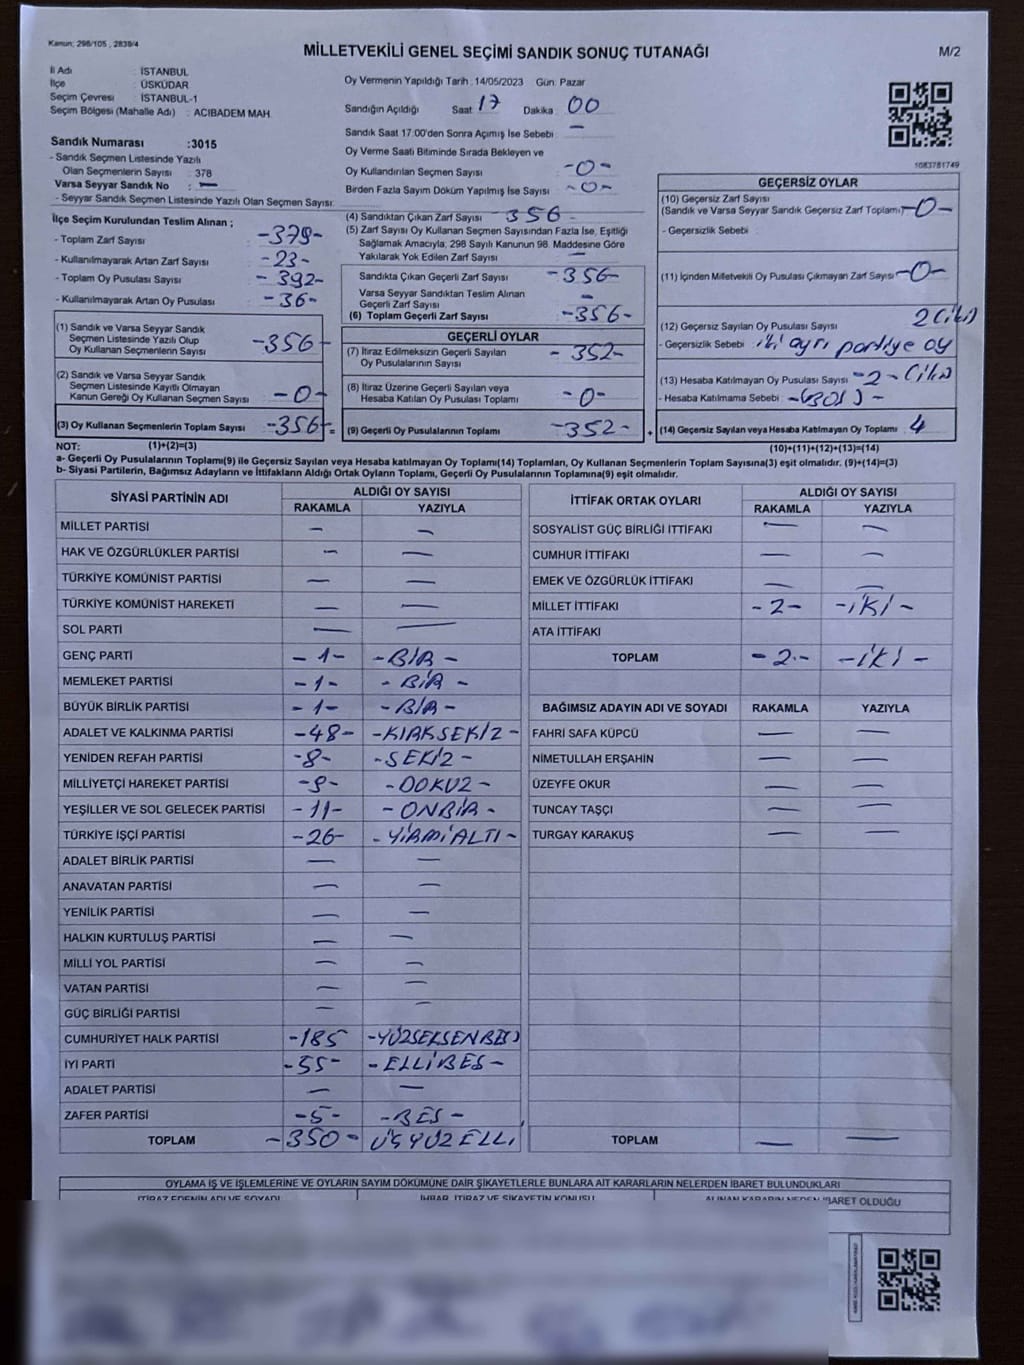 Kanun; 298/105 , 2839/4
MİLLETVEKİLİ GENEL SEÇİMİ SANDIK SONUÇ TUTANAĞI
M/2
İl Adı : İSTANBUL
İlçe : ÜSKÜDAR
Seçim Çevresi : İSTANBUL-1
Seçim Bölgesi (Mahalle Adı) : ACIBADEM MAH.
Sandık Numarası :3015
- Sandık Seçmen Listesinde Yazılı
Olan Seçmenlerin Sayısı : 378
Varsa Seyyar Sandık No : —
- Seyyar Sandık Seçmen Listesinde Yazılı Olan Seçmen Sayısı:
Oy Vermenin Yapıldığı Tarih : 14/05/2023 Gün: Pazar
Sandığın Açıldığı Saat 17 Dakika 00
Sandık Saat 17:00'den Sonra Açımış İse Sebebi : —
Oy Verme Saati Bitiminde Sırada Bekleyen ve
Oy Kullandırılan Seçmen Sayısı -0-
Birden Fazla Sayım Döküm Yapılmış İse Sayısı -0-
1083781749
İlçe Seçim Kurulundan Teslim Alınan ;
- Toplam Zarf Sayısı -379-
- Kullanılmayarak Artan Zarf Sayısı -23-
- Toplam Oy Pusulası Sayısı -392-
- Kullanılmayarak Artan Oy Pusulası -36-
(1) Sandık ve Varsa Seyyar Sandık
Seçmen Listesinde Yazılı Olup
Oy Kullanan Seçmenlerin Sayısı -356-
(2) Sandık ve Varsa Seyyar Sandık
Seçmen Listesinde Kayıtlı Olmayan
Kanun Gereği Oy Kullanan Seçmen Sayısı -0-
(3) Oy Kullanan Seçmenlerin Toplam Sayısı -356- =
(4) Sandıktan Çıkan Zarf Sayısı -356-
(5) Zarf Sayısı Oy Kullanan Seçmen Sayısından Fazla İse, Eşitliği
Sağlamak Amacıyla, 298 Sayılı Kanunun 98. Maddesine Göre
Yakılarak Yok Edilen Zarf Sayısı —
Sandıkta Çıkan Geçerli Zarf Sayısı -356-
Varsa Seyyar Sandıktan Teslim Alınan
Geçerli Zarf Sayısı —
(6) Toplam Geçerli Zarf Sayısı -356-
GEÇERLİ OYLAR
(7) İtiraz Edilmeksizin Geçerli Sayılan
Oy Pusulalarının Sayısı - 352-
(8) İtiraz Üzerine Geçerli Sayılan veya
Hesaba Katılan Oy Pusulası Toplamı -0-
(9) Geçerli Oy Pusulalarının Toplamı -352- +
GEÇERSİZ OYLAR
(10) Geçersiz Zarf Sayısı
(Sandık ve Varsa Seyyar Sandık Geçersiz Zarf Toplamı) -0-
- Geçersizlik Sebebi :
(11) İçinden Milletvekili Oy Pusulası Çıkmayan Zarf Sayısı -0-
(12) Geçersiz Sayılan Oy Pusulası Sayısı 2 (iki)
- Geçersizlik Sebebi : iki ayrı partiye oy
(13) Hesaba Katılmayan Oy Pusulası Sayısı -2- (iki)
- Hesaba Katılmama Sebebi -(BOŞ)-
(14) Geçersiz Sayılan veya Hesaba Katılmayan Oy Toplamı 4
NOT: (1)+(2)=(3) (10)+(11)+(12)+(13)=(14)
a- Geçerli Oy Pusulalarının Toplamı(9) ile Geçersiz Sayılan veya Hesaba katılmayan Oy Toplamı(14) Toplamları, Oy Kullanan Seçmenlerin Toplam Sayısına(3) eşit olmalıdır. (9)+(14)=(3)
b- Siyasi Partilerin, Bağımsız Adayların ve İttifakların Aldığı Ortak Oyların Toplamı, Geçerli Oy Pusulalarının Toplamına(9) eşit olmalıdır.
SİYASİ PARTİNİN ADI ALDIĞI OY SAYISI
RAKAMLA YAZIYLA
MİLLET PARTİSİ — —
HAK VE ÖZGÜRLÜKLER PARTİSİ — —
TÜRKİYE KOMÜNİST PARTİSİ — —
TÜRKİYE KOMÜNİST HAREKETİ — —
SOL PARTİ — —
GENÇ PARTİ -1- -BİR-
MEMLEKET PARTİSİ -1- -BİR-
BÜYÜK BİRLİK PARTİSİ -1- -BİR-
ADALET VE KALKINMA PARTİSİ -48- -KIRKSEKİZ-
YENİDEN REFAH PARTİSİ -8- -SEKİZ-
MİLLİYETÇİ HAREKET PARTİSİ -9- -DOKUZ-
YEŞİLLER VE SOL GELECEK PARTİSİ -11- -ONBİR-
TÜRKİYE İŞÇİ PARTİSİ -26- -YİRMİALTI-
ADALET BİRLİK PARTİSİ — —
ANAVATAN PARTİSİ — —
YENİLİK PARTİSİ — —
HALKIN KURTULUŞ PARTİSİ — —
MİLLİ YOL PARTİSİ — —
VATAN PARTİSİ — —
GÜÇ BİRLİĞİ PARTİSİ — —
CUMHURİYET HALK PARTİSİ -185 -YÜZSEKSENBEŞ
İYİ PARTİ -55- -ELLİBEŞ-
ADALET PARTİSİ — —
ZAFER PARTİSİ -5- -BEŞ-
TOPLAM -350- ÜÇYÜZELLİ
İTTİFAK ORTAK OYLARI ALDIĞI OY SAYISI
RAKAMLA YAZIYLA
SOSYALİST GÜÇ BİRLİĞİ İTTİFAKI — —
CUMHUR İTTİFAKI — —
EMEK VE ÖZGÜRLÜK İTTİFAKI — —
MİLLET İTTİFAKI -2- -İKİ-
ATA İTTİFAKI
TOPLAM -2- -İKİ-
BAĞIMSIZ ADAYIN ADI VE SOYADI RAKAMLA YAZIYLA
FAHRİ SAFA KÜPCÜ — —
NİMETULLAH ERŞAHİN — —
ÜZEYFE OKUR — —
TUNCAY TAŞÇI — —
TURGAY KARAKUŞ — —
TOPLAM — —
OYLAMA İŞ VE İŞLEMLERİNE VE OYLARIN SAYIM DÖKÜMÜNE DAİR ŞİKAYETLERLE BUNLARA AİT KARARLARIN NELERDEN İBARET BULUNDUKLARI
İTİRAZ EDENİN ADI VE SOYADI İHBAR, İTİRAZ VE ŞİKAYETİN KONUSU ALINAN KARARIN NEDEN İBARET OLDUĞU